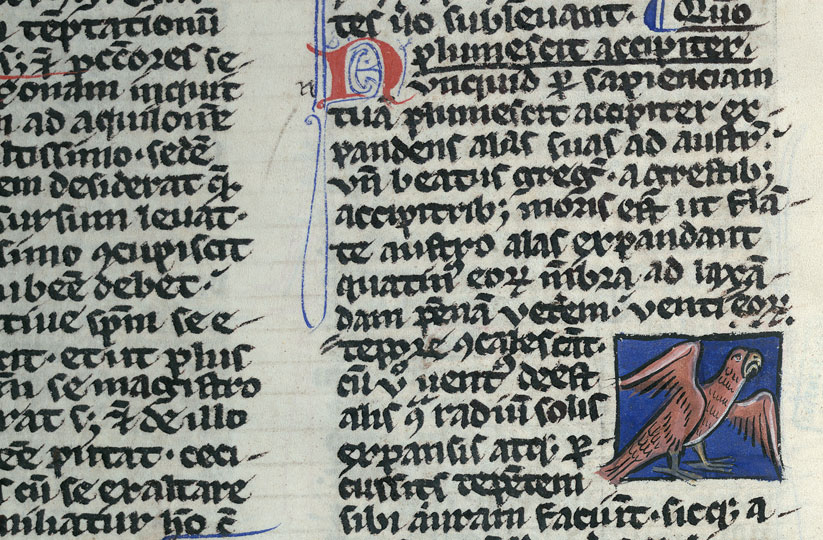 n te͞ptationu͞
pc͞cores se-
gonam inquit
n ad aquilone͞
ltissimo · sede͞
em desiderat q͞.
sursum leuat·
simo ꝯcupiscit
debet·
tiue sp͞m se e-
cit· et ut plus
se magistro
rat s; ⁊ de illo
putat· ceci-
s cu͞ se exaltare
miliatur h͞o c͞
tes u͞o subleuant· Quo͞
plumescit accipiter.
Nunquid ꝑ sapienciam
tua͞ plumescit accipiter ex-
pandens alas suas ad austr͞.
Vn͞ beatus greg͞· agrestib;
accipitrib; moris est ut fla͞-
te austro alas expandant
quatin᷒ eoꝝ m͞bra ad laxa͞-
dam pe͞na͞ vetem· venti eoꝝ
tepore ꝯcalescant·
cu͞ u͞ uent᷒ deest
alis ꝯ͞ radiu͞ solis
expansis atq; ꝑ-
cussis tepe͞tem
sibi auram faciu͞t· sicq; a-